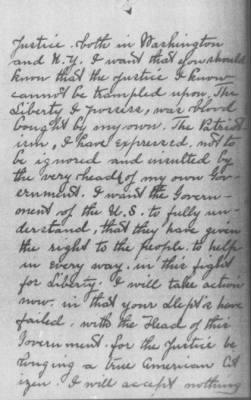 Justice. both in Washington
and N.Y. I want that you should
know that the justice I know
cannot be trampled upon. The
Liberty I possess, was blood
bought by my own. The Patriot
ism, I have expressed, not to
be ignored and insulted by
the very head of my own Gov-
ernment. I want the Govern-
ment of the U.S. to fully un-
derstand, that they have given
the right to the people to help
in every way. in this fight
for Liberty. I will take action
now. in that your Dept's have
failed. with the Head of this
Government. for the Justice be
longing a true American Cit
izen. I will accept nothing